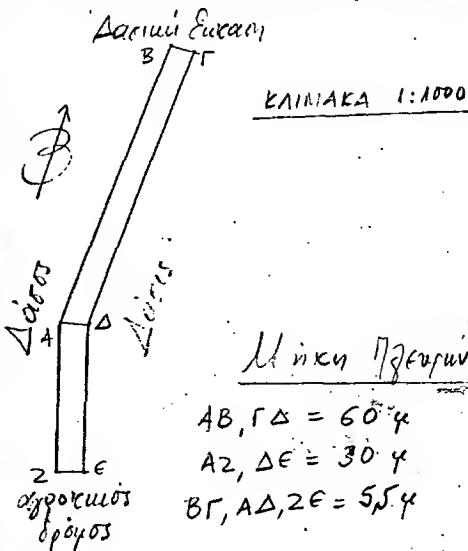 Δασική έκταση
Β Γ
ΚΛΙΜΑΚΑ 1:1000
Β
Δάσος
Δάσος
Α Δ
Μήκη Πλευρών
ΑΒ, ΓΔ = 60 μ
ΑΖ, ΔΕ = 30 μ
ΒΓ, ΑΔ, ΖΕ = 5,5 μ
Ζ Ε
αγροτικός
δρόμος